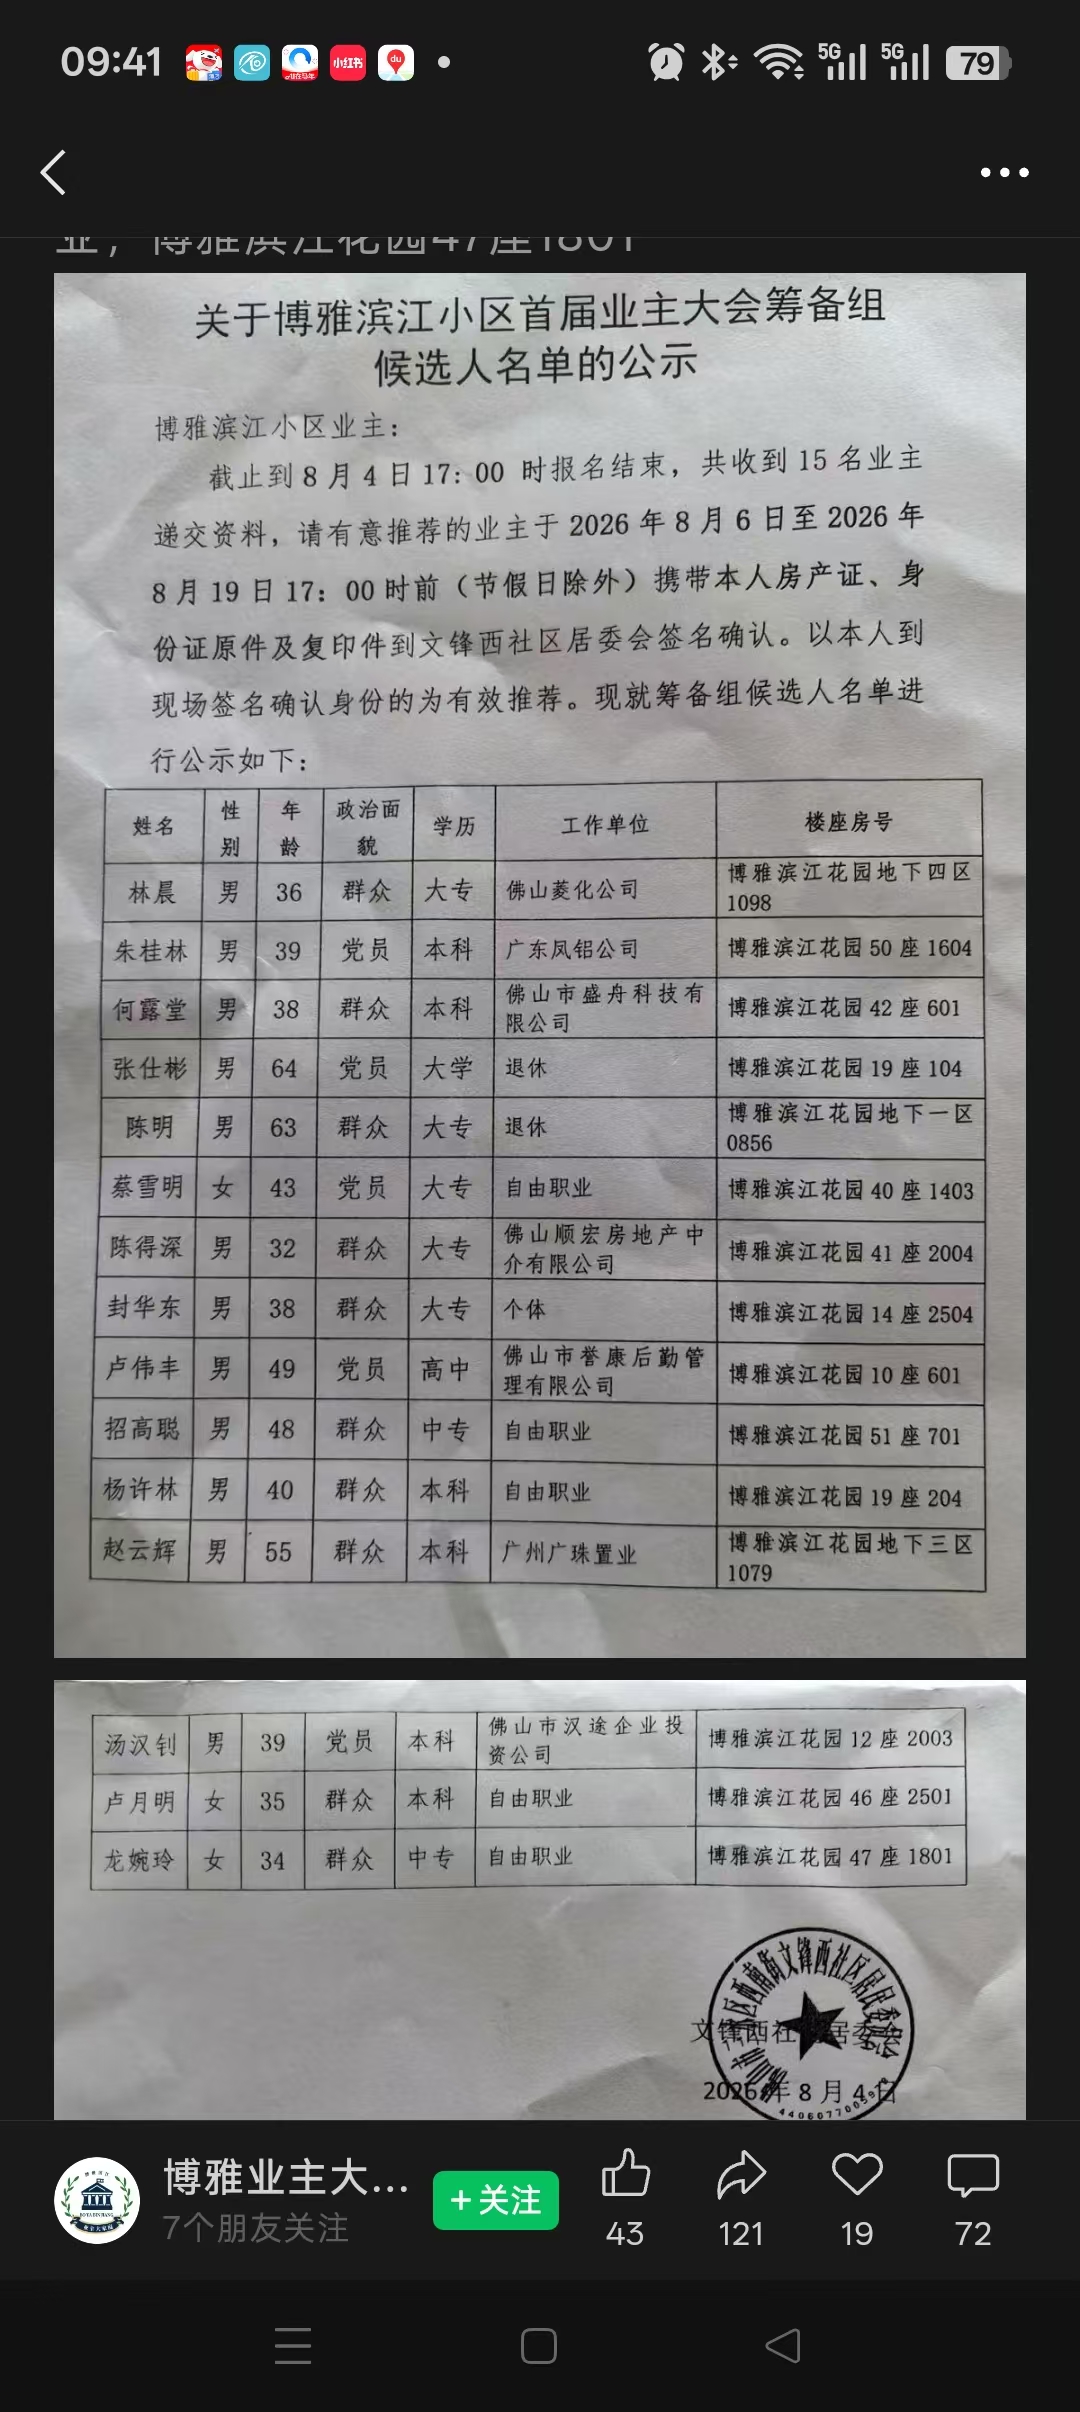 09:41
小红书
du
5G
5G
79
业，博雅滨江花园47座1801
关于博雅滨江小区首届业主大会筹备组
候选人名单的公示
博雅滨江小区业主：
截止到8月4日17：00 时报名结束，共收到15名业主
递交资料，请有意推荐的业主于2026年8月6日至2026年
8月19日17：00时前（节假日除外）携带本人房产证、身
份证原件及复印件到文锋西社区居委会签名确认。以本人到
现场签名确认身份的为有效推荐。现就筹备组候选人名单进
行公示如下：
姓名 性别 年龄 政治面貌 学历 工作单位 楼座房号
林晨 男 36 群众 大专 佛山菱化公司 博雅滨江花园地下四区1098
朱桂林 男 39 党员 本科 广东凤铝公司 博雅滨江花园50座1604
何露堂 男 38 群众 本科 佛山市盛舟科技有限公司 博雅滨江花园42座601
张仕彬 男 64 党员 大学 退休 博雅滨江花园19座104
陈明 男 63 群众 大专 退休 博雅滨江花园地下一区0856
蔡雪明 女 43 党员 大专 自由职业 博雅滨江花园40座1403
陈得深 男 32 群众 大专 佛山顺宏房地产中介有限公司 博雅滨江花园41座2004
封华东 男 38 群众 大专 个体 博雅滨江花园14座2504
卢伟丰 男 49 党员 高中 佛山市誉康后勤管理有限公司 博雅滨江花园10座601
招高聪 男 48 群众 中专 自由职业 博雅滨江花园51座701
杨许林 男 40 群众 本科 自由职业 博雅滨江花园19座204
赵云辉 男 55 群众 本科 广州广珠置业 博雅滨江花园地下三区1079
汤汉钊 男 39 党员 本科 佛山市汉途企业投资公司 博雅滨江花园12座2003
卢月明 女 35 群众 本科 自由职业 博雅滨江花园46座2501
龙婉玲 女 34 群众 中专 自由职业 博雅滨江花园47座1801
区西南街文锋西社区居民委员会
文锋西社 居委会
2026年8月4日
博雅业主大...
7个朋友关注
+关注
43
121
19
72